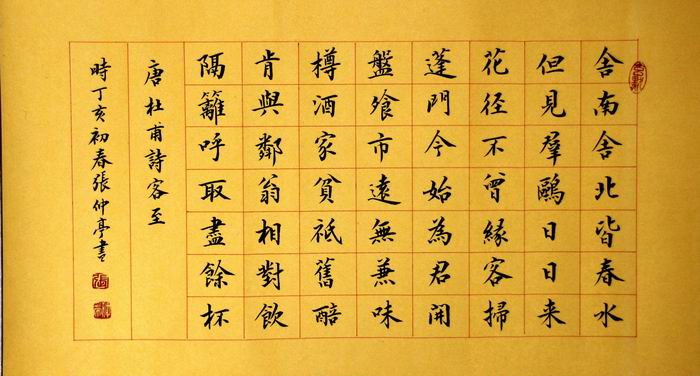 舍南舍北皆春水
但見羣鷗日日来
花径不曾緣客掃
蓬門今始為君開
盤飧市遠無蒹味
樽酒家貧祗舊醅
肯與鄰翁相對飲
隔籬呼取盡餘杯
唐杜甫詩客至
時丁亥初春張仲亭書